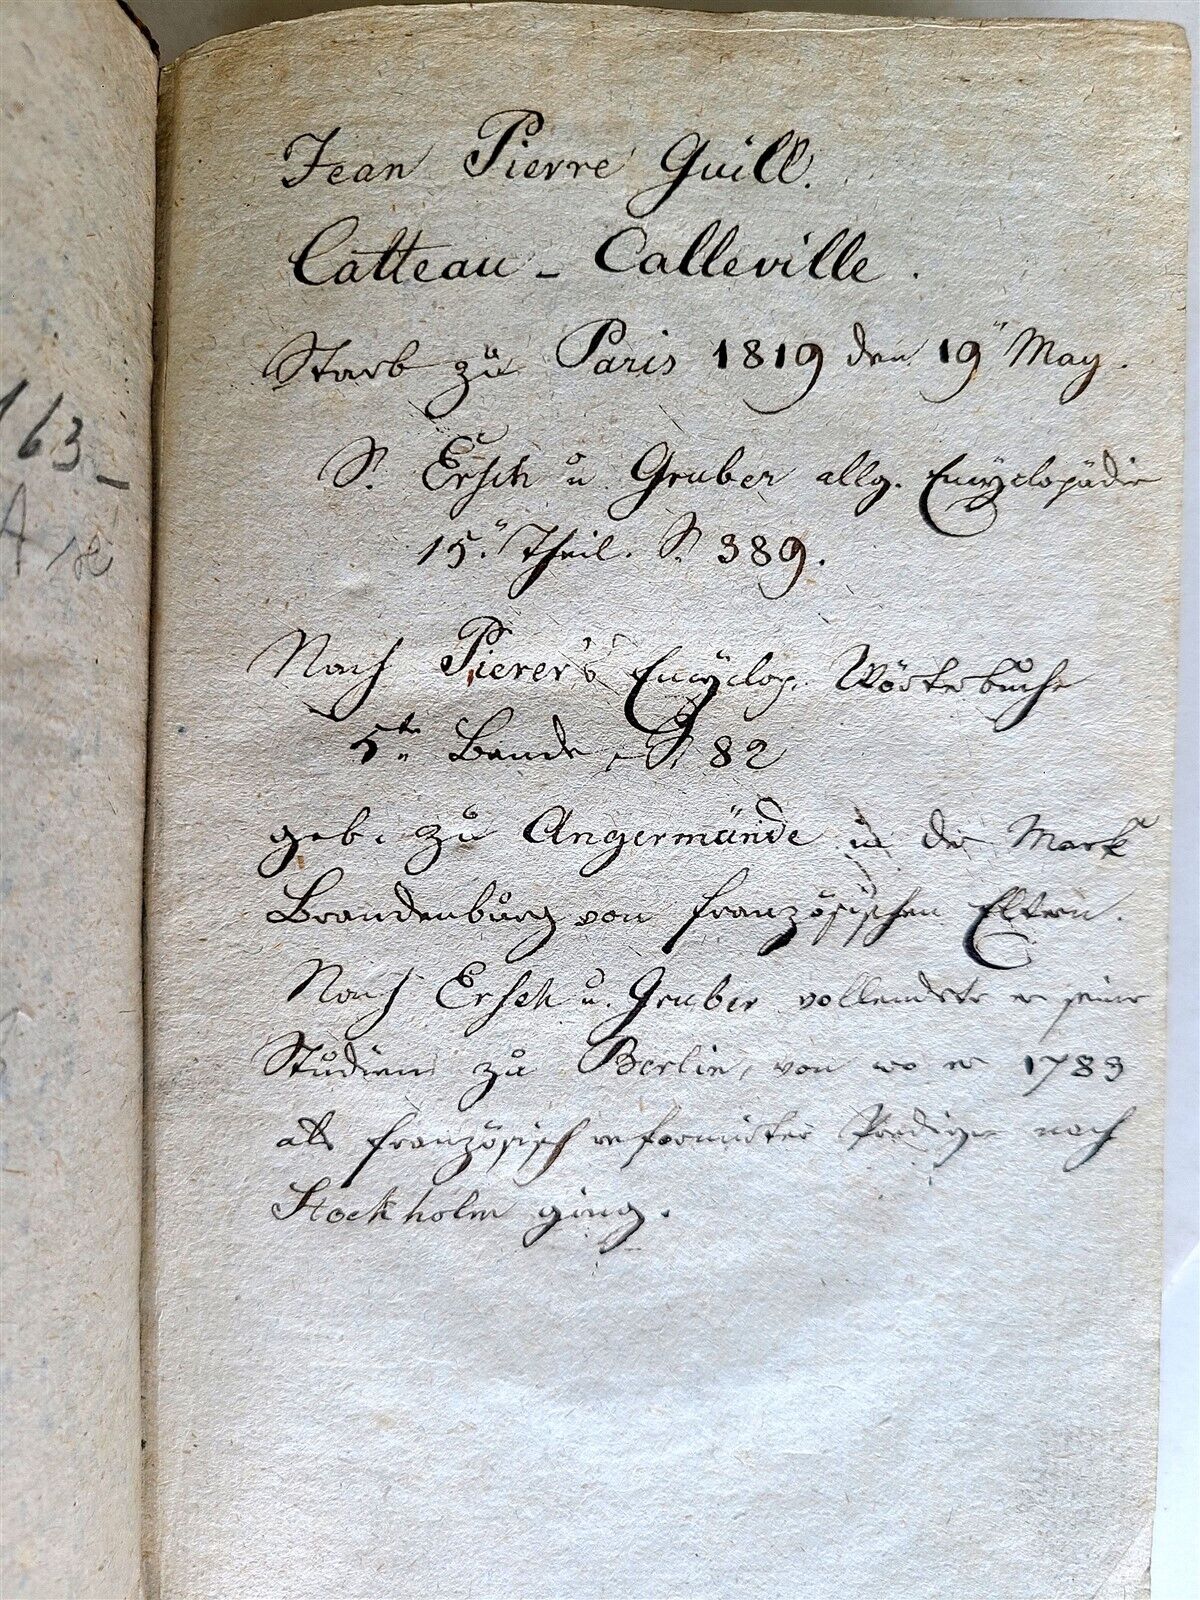 163 –
A
Jean Pierre Guill.
Catteau – Calleville.
Starb zu Paris 1819 den 19" May.
S. Ersch u. Gruber allg. Encyclopädie
15." Theil. S. 389.
Nach Pierer's Encyclop. Wörterbuche
5te Bande, S. 82
geb. zu Angermünde in der Mark
Brandenburg von französischen Eltern.
Nach Ersch u. Gruber vollendete er seine
Studien zu Berlin, von wo er 1783
als französisch reformirter Prediger nach
Stockholm ging.